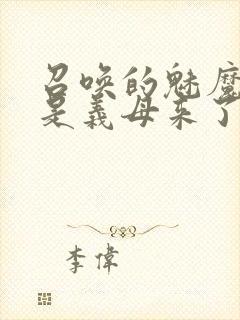 召唤的魅魔
是義母来了
李偉